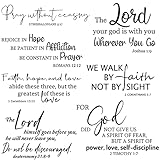 Pray without ceasing
The Lord
your god is with you
Wherever You Go
Joshua 1:9
Rejoice in HOPE
BE PATIENT IN Affliction
BE CONSTANT IN PRAYER
ROMANS 12:12
Faith, hope, and love
abide these three, but the
greatest of these is
love
1 Corinthians 13:13
WE WALK
BY faith
NOT BY SIGHT
2 CORINTHIANS 5:7
The Lord
himself goes before you, he
will never leave you
do not be discouraged
Deuteronomy 31:8
For God
DID
NOT GIVE US
A SPIRIT OF FEAR,
BUT A SPIRIT OF
power, love, self-discipline
2 TIMOTHY 1:7